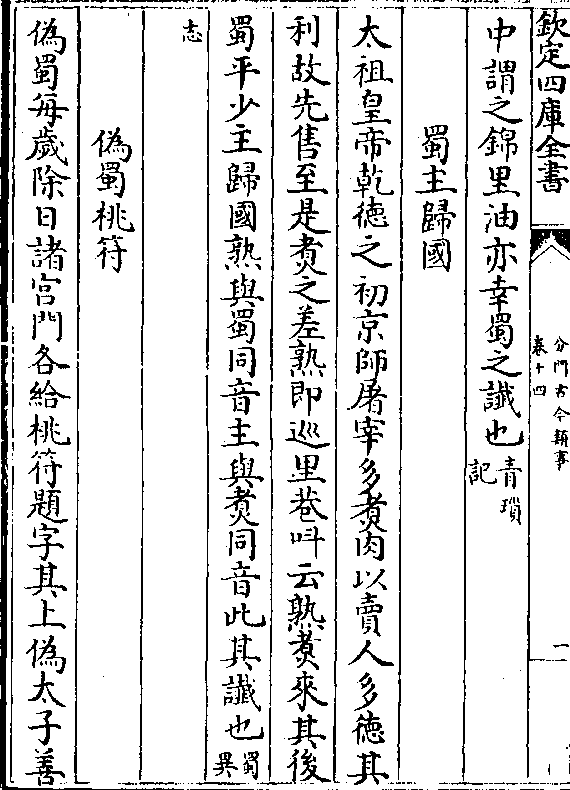 欽定四庫全書
分門古今類事
卷十四
一
中謂之錦里油亦幸蜀之讖也青瑣
記
蜀主歸國
太祖皇帝乾德之初京師屠宰多煑肉以賣人多德其
利故先售至是煑之差熟即廵里巷呌云熟煑來其後
蜀平少主歸國熟與蜀同音主與煑同音此其讖也蜀異
志
偽蜀桃符
偽蜀每歲除日諸宮門各給桃符題字其上偽太子善